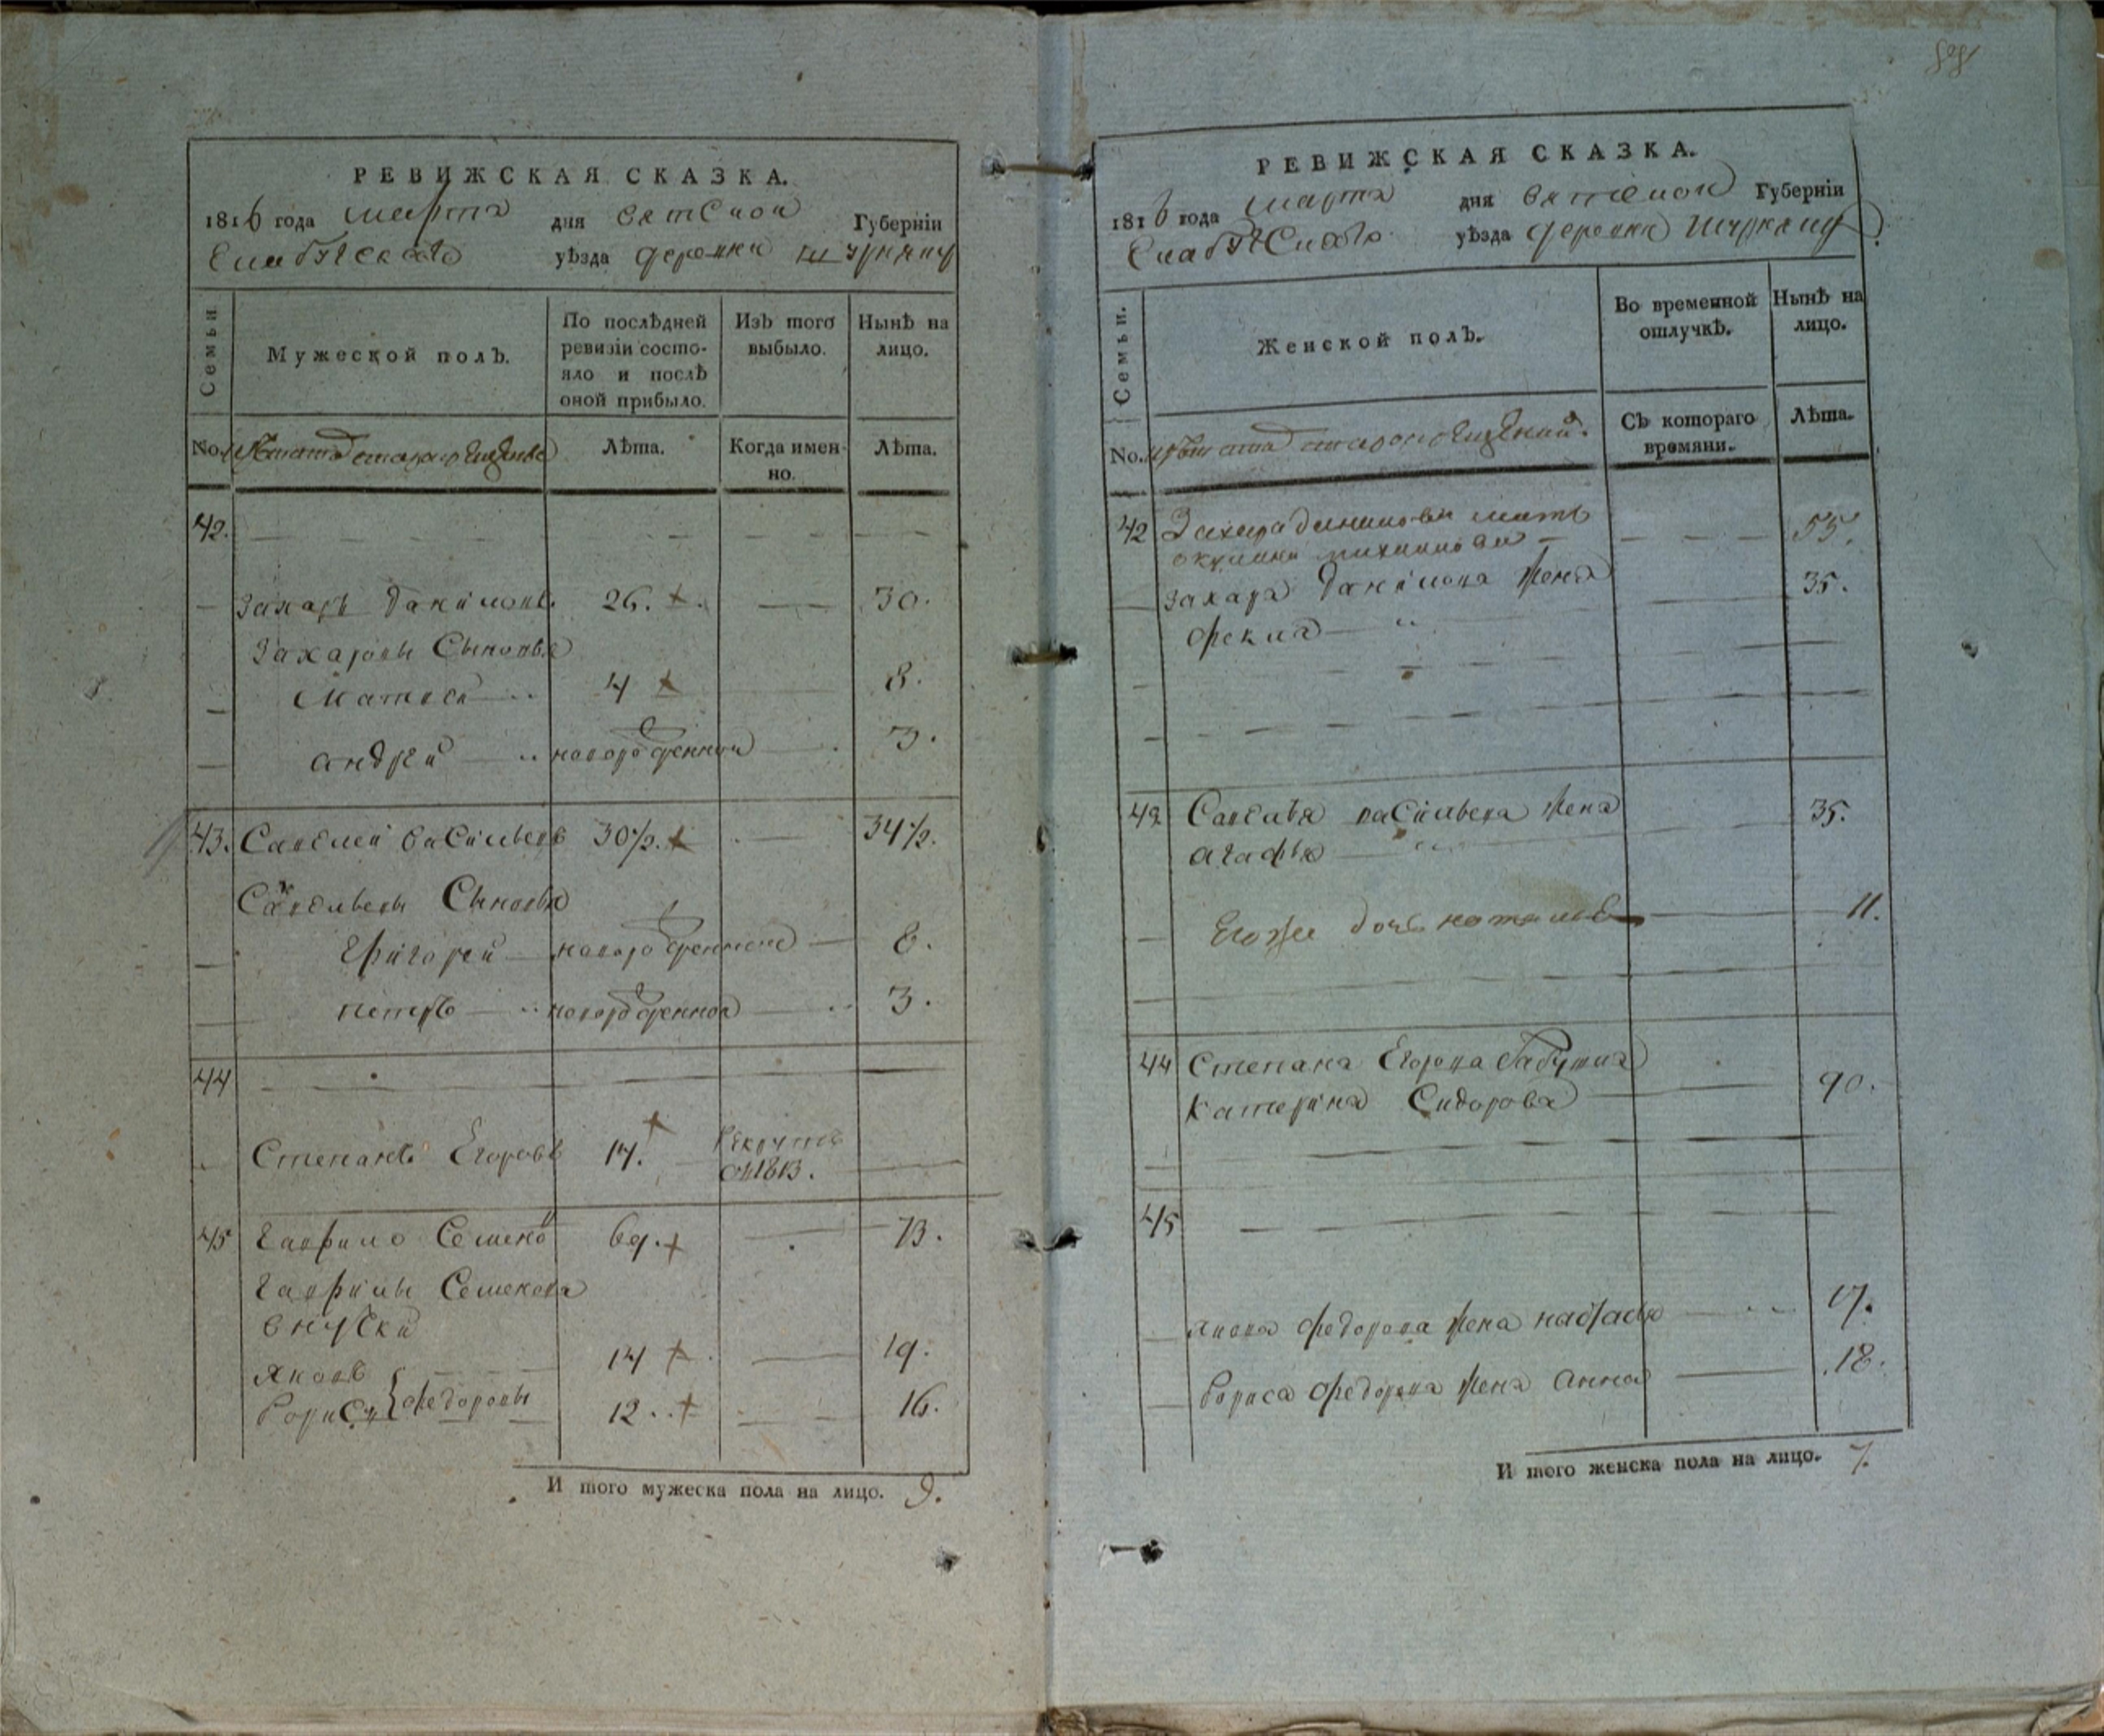 РЕВИЖСКАЯ СКАЗКА.
1816 года марта дня вятской Губерніи
Елабужскаго уѣзда деревни
Семьи.
Мужеской полъ.
По послѣдней ревизіи состо-
яло и послѣ
оной прибыло.
Изъ того
выбыло.
Нынѣ на
лицо.
No.
Лѣта.
Когда имен-
но.
Лѣта.
42.
Захаръ даниловъ 26. 30.
Захаровы Сыновья
Матвей 4 8.
андрей новорожденной 3.
43. Савелей васильевъ 30½. 34½.
Савельевы Сыновья
григорей новорожденной 8.
петръ новорожденной 3.
44
Степанъ Егоровъ 14. рекруты
в 1813.
45 гаврило Семенов 69. 73.
гаврилы Семенова
внуки
яковъ 14 19.
борисъ федоровы 12. 16.
И того мужеска пола на лицо. 9.
РЕВИЖСКАЯ СКАЗКА.
1816 года марта дня вятской Губерніи
Елабужскаго уѣзда деревни
Семьи.
Женской полъ.
Во временной
отлучкѣ.
Нынѣ на
лицо.
No.
Съ котораго
времяни.
Лѣта.
42 Захара данилова мать 55.
Захара данилова жена 35.
фекла
43 Савелья васильева жена 35.
агафья
Егоже дочь наталья 11.
44 Степана Егорова бабушка
катерина Сидорова 90.
45
якова федорова жена 17.
бориса федорова жена анна 18.
И того женска пола на лицо. 7.